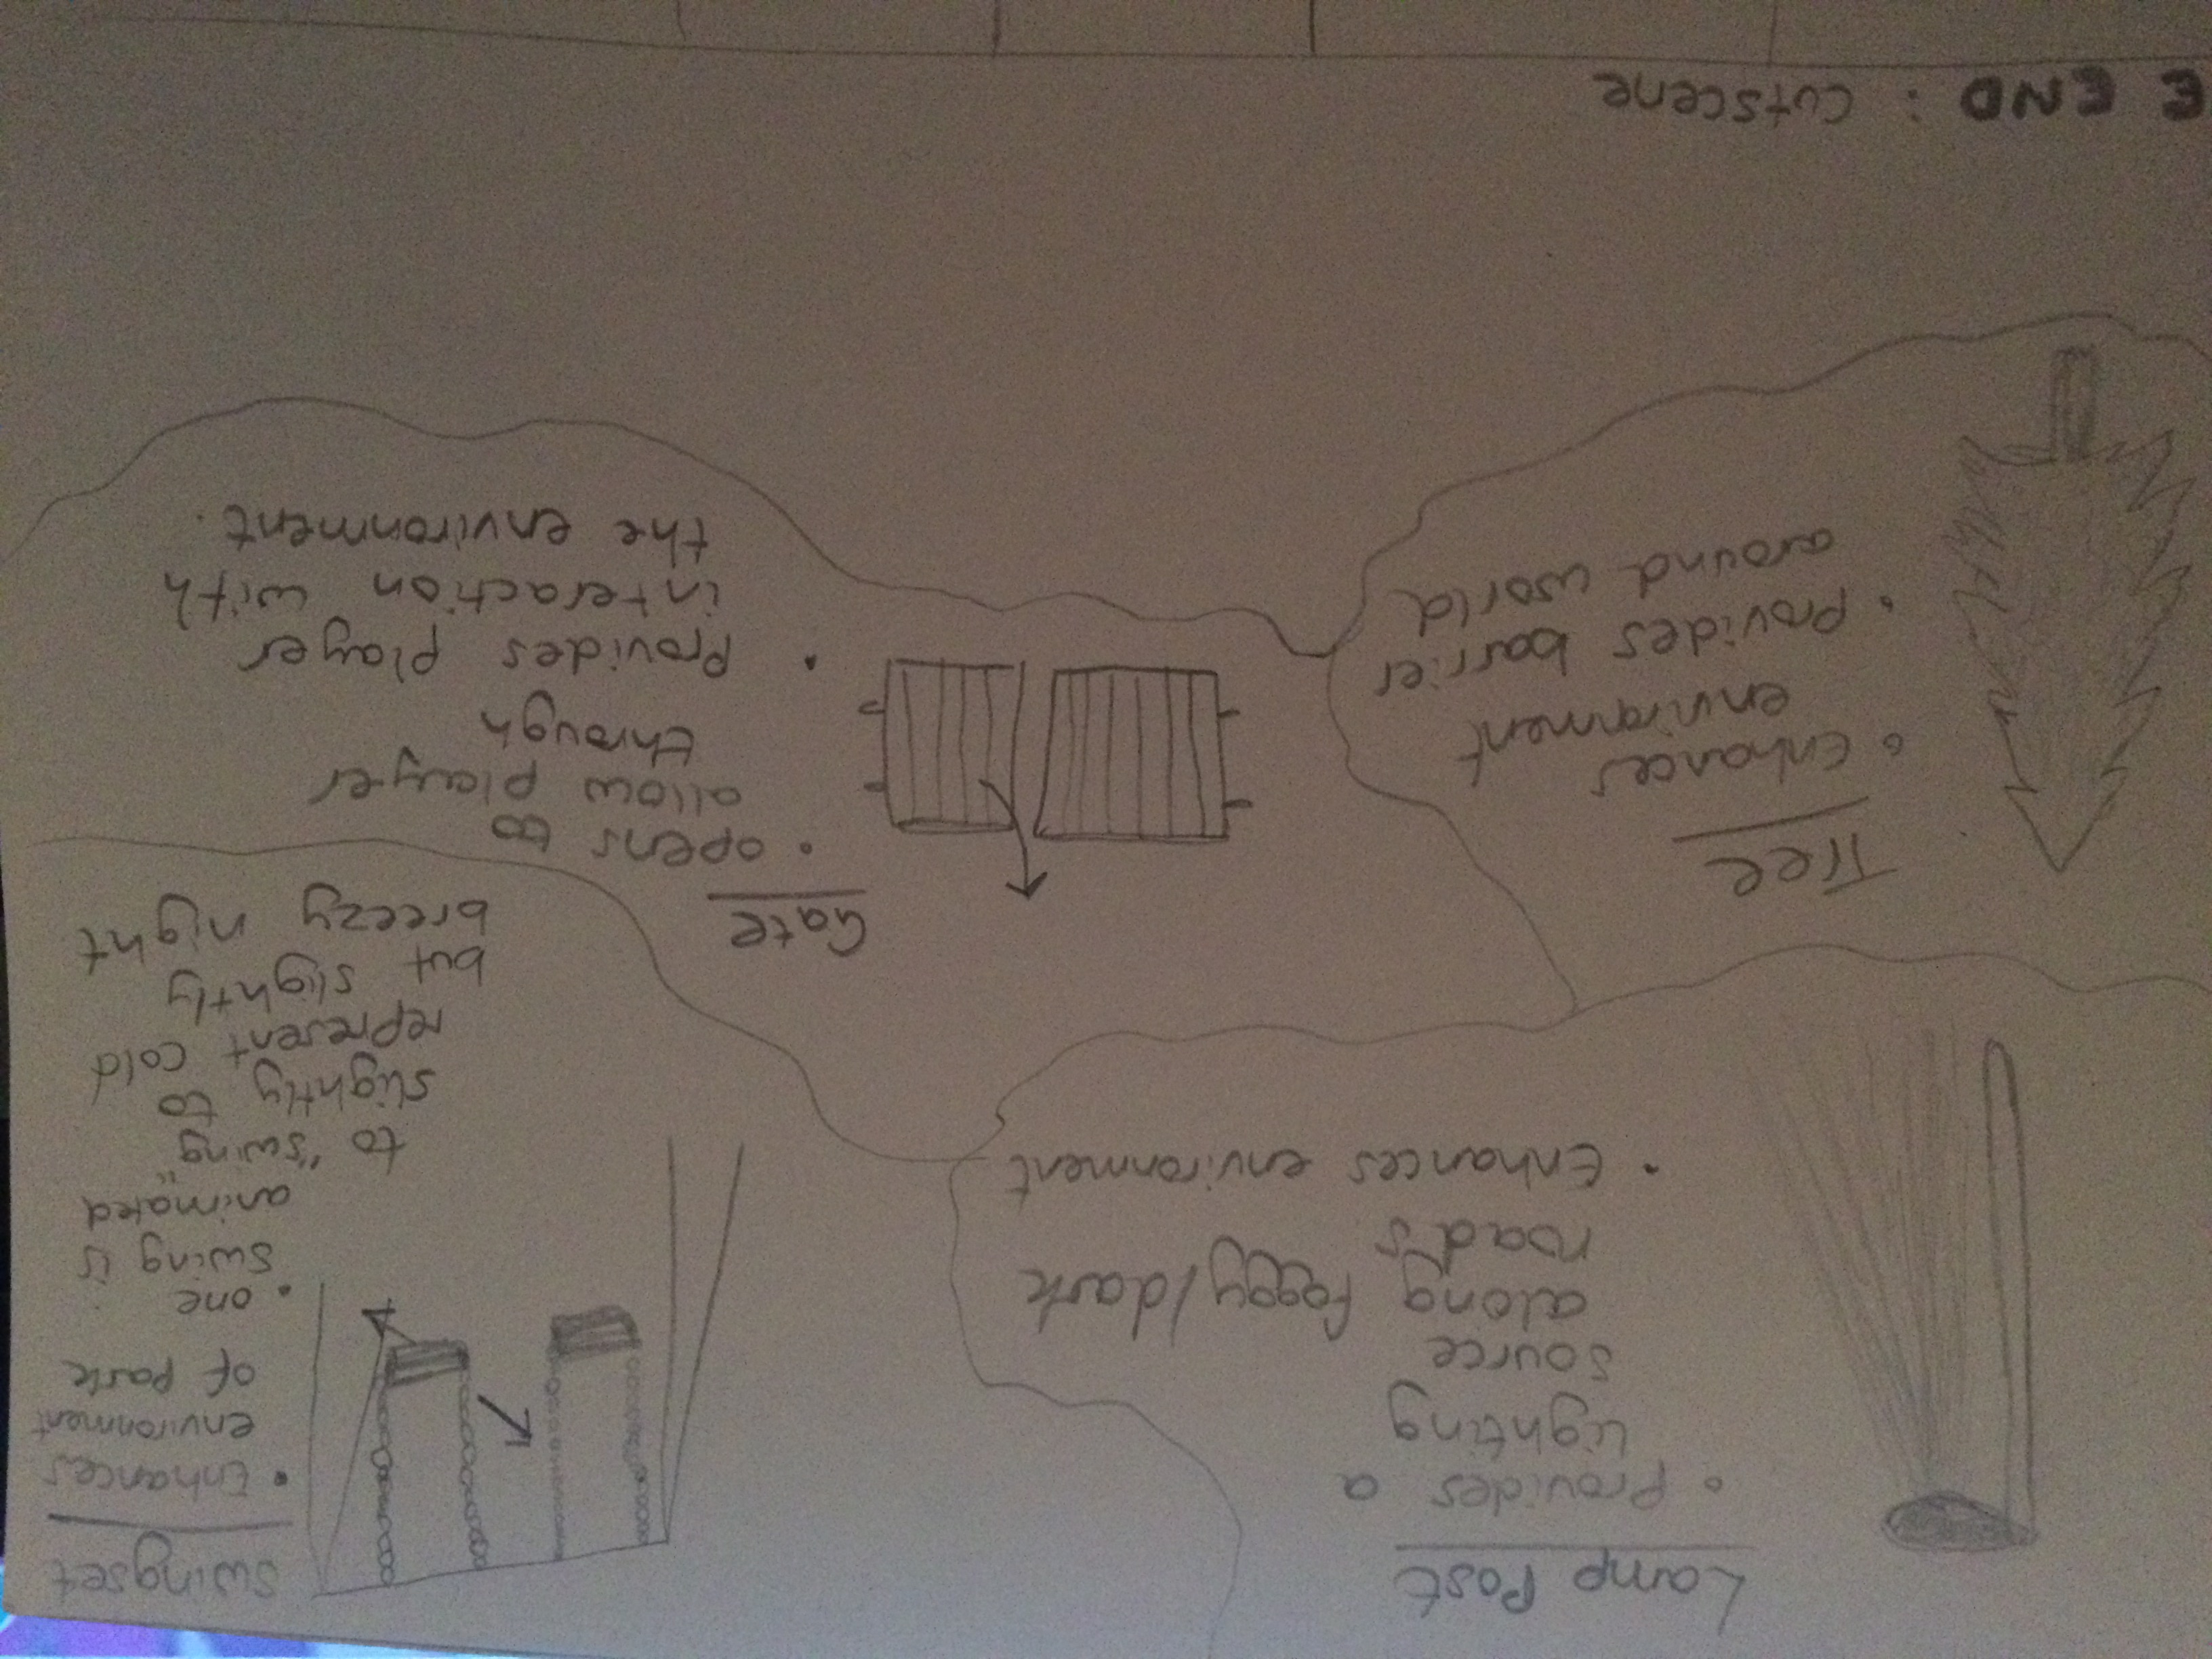 Lamp Post
• Provides a
lighting
source
along foggy/dark
roads
• Enhances environment
Swingset
• Enhances
environment
of park
• one
swing is
animated
to "swing"
slightly to
represent cold
but slightly
breezy night
Tree
• Enhances
environment
• Provides barrier
around world
Gate
• opens to
allow player
through
• Provides player
interaction with
the environment.
E END : Cutscene